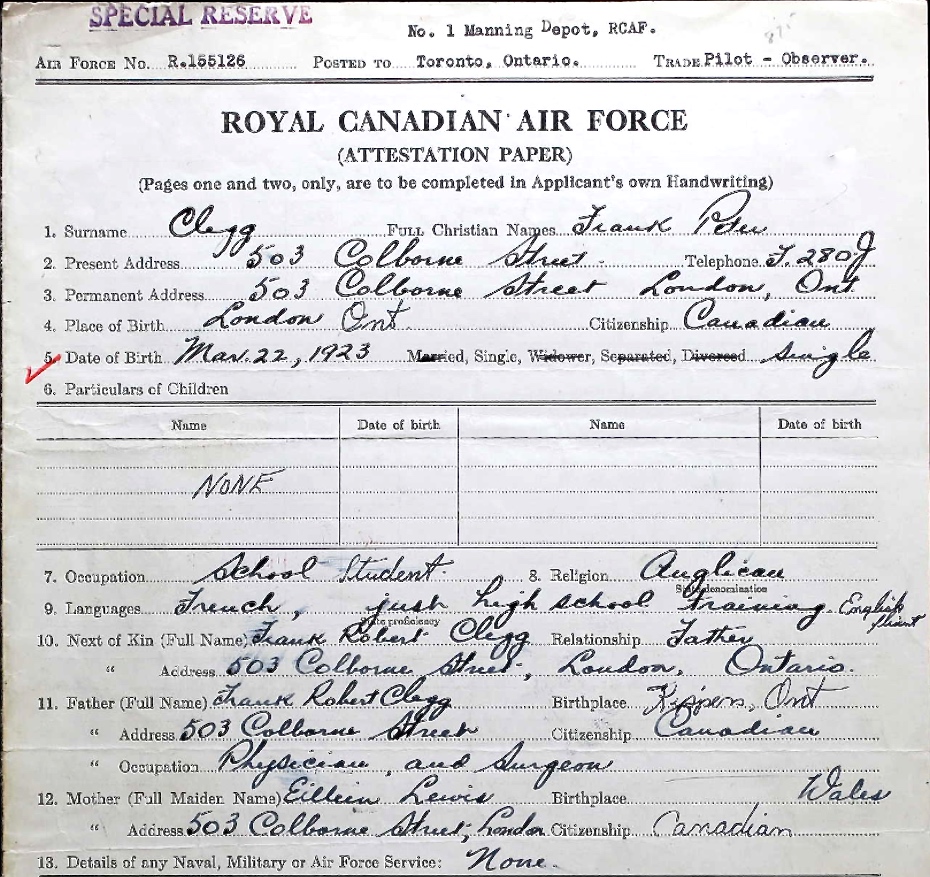 SPECIAL RESERVE
No. 1 Manning Depot, RCAF.
AIR FORCE NO. R.155126 POSTED TO Toronto, Ontario. TRADE Pilot - Observer.
ROYAL CANADIAN AIR FORCE
(ATTESTATION PAPER)
(Pages one and two, only, are to be completed in Applicant's own Handwriting)
1. Surname Clegg FULL Christian Names Frank Peter
2. Present Address 503 Colborne Street - Telephone F. 280 J
3. Permanent Address 503 Colborne Street London, Ont.
4. Place of Birth London Ont. Citizenship Canadian
5. Date of Birth Mar. 22, 1923 Married, Single, Widower, Separated, Divorced single
6. Particulars of Children
Name Date of birth Name Date of birth
NONE
7. Occupation School Student. 8. Religion Anglican
State denomination
9. Languages French, just high school training. English fluent
State proficiency
10. Next of Kin (Full Name) Frank Robert Clegg Relationship Father
" Address 503 Colborne Street, London, Ontario.
11. Father (Full Name) Frank Robert Clegg Birthplace Kippen, Ont
" Address 503 Colborne Street Citizenship Canadian
" Occupation Physician, and Surgeon
12. Mother (Full Maiden Name) Eillein Lewis Birthplace Wales
" Address 503 Colborne Street, London Citizenship Canadian
13. Details of any Naval, Military or Air Force Service: None.